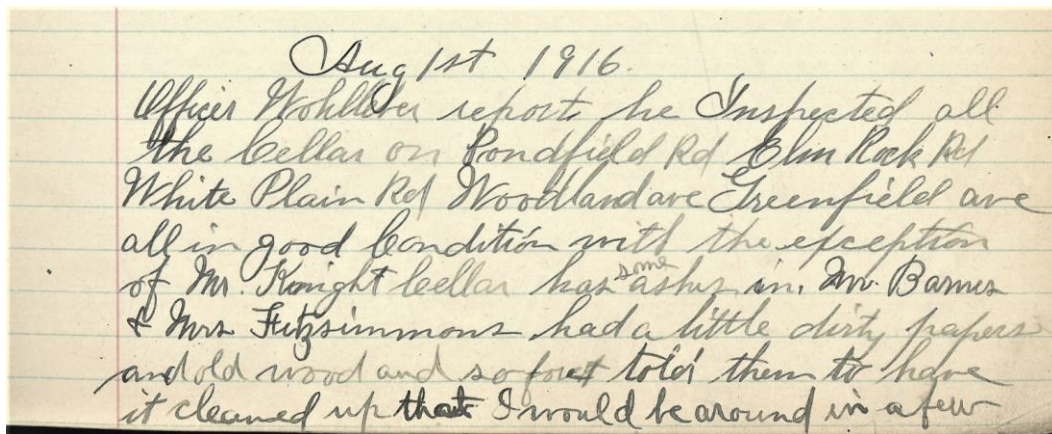 Aug 1st 1916.
Officer report he Inspected all
the Cellar on Pondfield Rd Elm Rock Rd
White Plain Rd Woodland ave Greenfield ave
all in good Condition with the exception
of Mr. Knight Cellar has some ashes in. Mr. Barnes
& Mrs Fitzsimmons had a little dirty papers
and old wood and so told them to have
it cleaned up that I would be around in a few